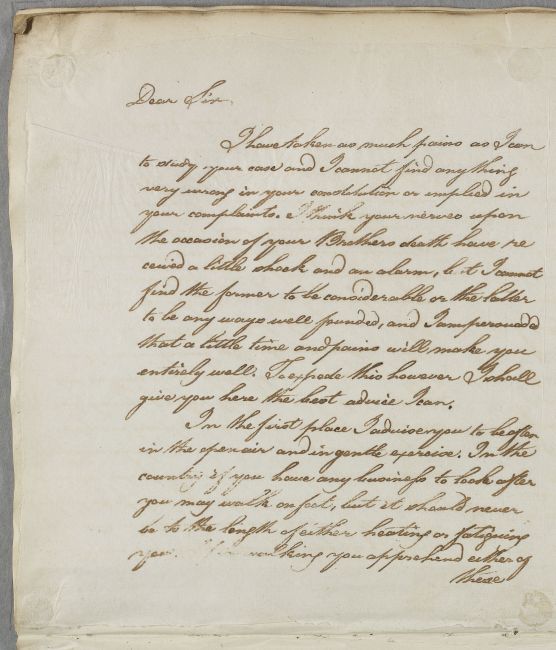 Dear Sir,
I have taken as much pains as I can
to study your case and I cannot find any thing
very wrong in your constitution or implied in
your complaints. I think your nerves upon
the occasion of your Brothers death have re
ceived a little shock and an alarm, but I cannot
find the former to be considerable or the latter
to be any ways well founded, and I am persuaded
that a little time and pains will make you
entirely well. To expede this however I shall
give you here the best advice I can.
In the first place I advise you to be often
in the open air and in gentle exercise. In the
country if you have any business to look after
you may walk on foot, but it should never
be to the length of either heating or fatiguing
you. If in walking you apprehend either of
these